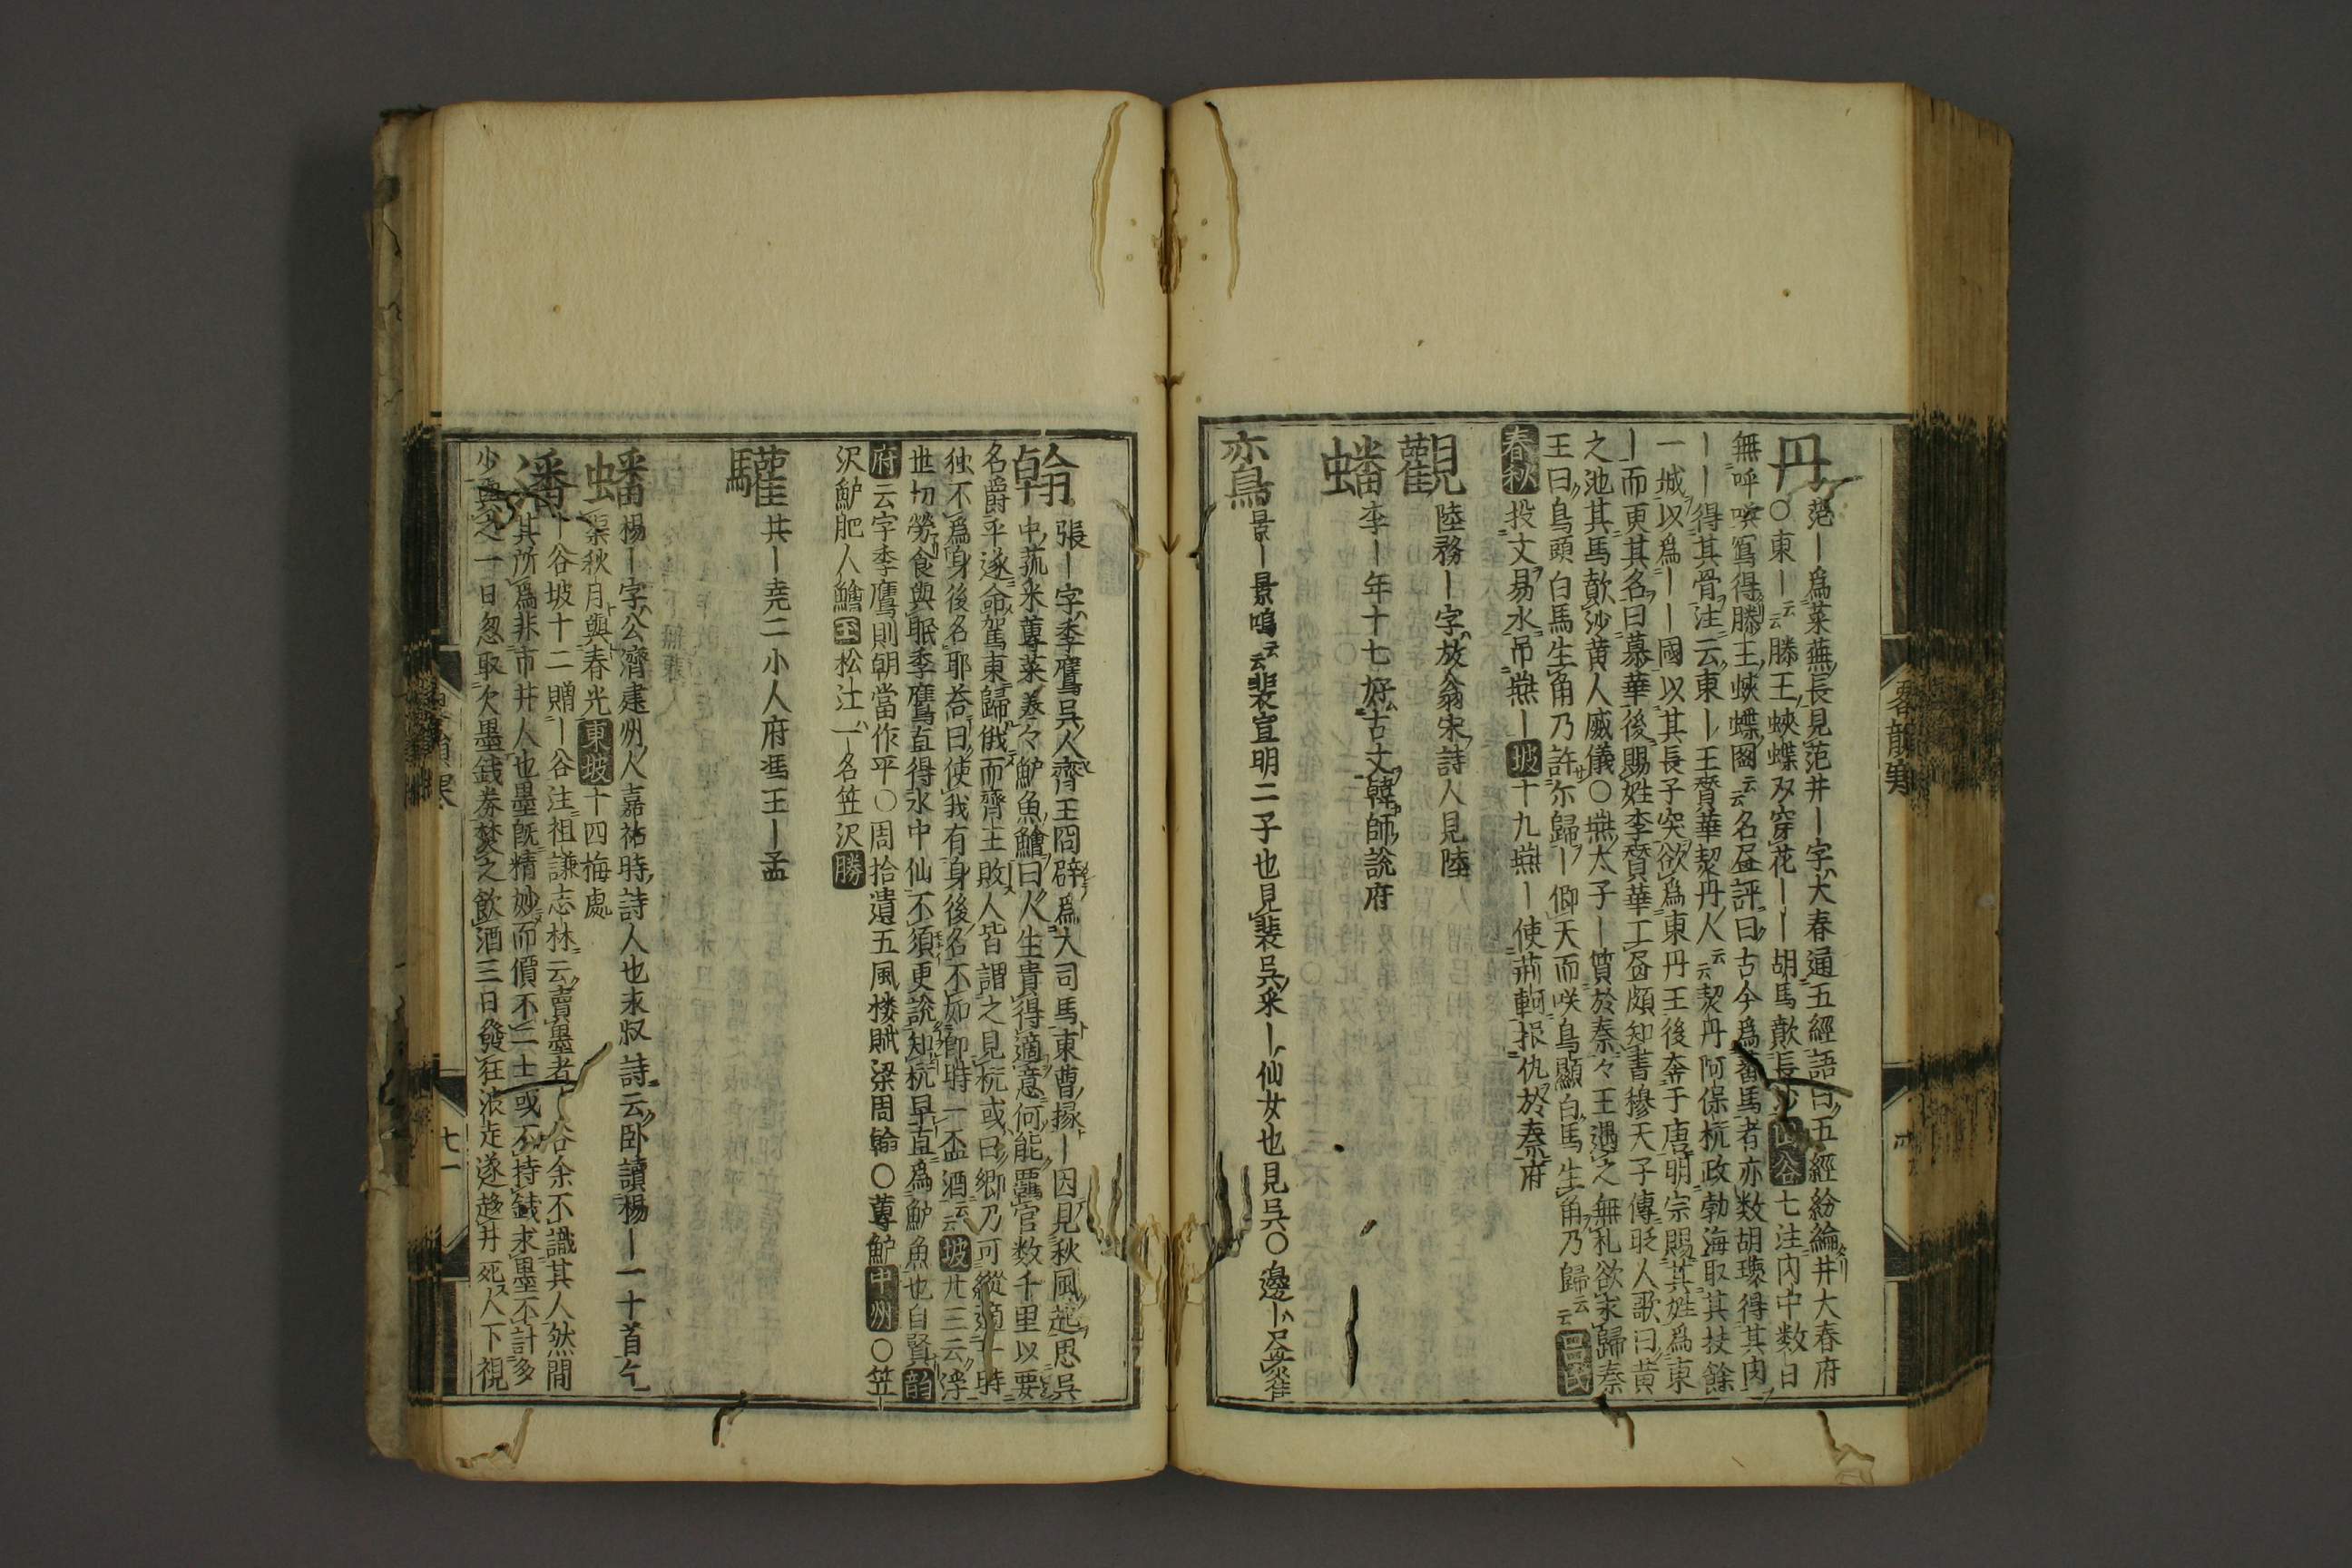 丹 范ー爲萊蕪長見范井ー字大春通五經語曰五經紛綸井大春府
○東ー云云滕王蛺蝶双穿花ーー胡馬歕長沙山谷七注内中数日
無呼喚寫得滕王蛺蝶啚云云名昼評曰古今爲蕃馬者亦数胡瓌得其肉
ーー得其骨注云東ー王賛華契丹人云云契丹阿保机政勃海取其扶餘
一城以爲ーー國以其長子突欲爲東丹王後奔于唐明宗賜其姓爲東
ー而更其名曰慕華後賜姓李賛華工昼頗知書穆天子傳 人歌曰黄
之池其馬歕沙黄人威儀○燕太子ー質於秦々王遇之無礼欲求歸秦
王曰烏頭白馬生角乃許尓歸ー仰天而咲烏顯白馬生角乃歸云云呂氏
春秋 投文易水吊燕ー坡十九燕ー使荊軻报仇於秦府
觀 陸務ー字放翁宋詩人見陸
蟠 李ー年十七好古文韓師說府
鴍 景ー景鳴云云裴宣明二子也見裴吳采ー仙女也見吳○邊ー
翰 張ー字季鷹吳人齊王冏辟爲大司馬東曹掾ー因見秋風起思吳
中菰米蓴菜羮々鱸魚鱠曰人生貴得適意何能羈官数千里以要
名爵乎遂命駕東歸俄而齊王敗人皆謂之見机或曰卿乃可縱適一時
独不爲身後名耶荅曰使我有身後名不如即時一盃酒云云坡廾三云浮
世切勞食與眠季鷹直得水中仙不須更說知机早直爲鱸魚也自賢韵
府 云字季鷹則朝當作平○周拾遺五風楼賦梁周翰○蓴鱸中州○笠ー
沢鱸肥人鱠玉松江一名笠沢勝
驩 共ー尭二小人府馮王ー孟
蟠 楊ー字公濟建州人嘉祐時詩人也永叔詩云卧讀楊ー一十首乞
渠秋月與春光東坡十四梅處
潘 ー谷坡十二贈ー谷注祖謙志林云賣墨者ー谷余不識其人然間
其所爲非市井人也墨既精妙而價不二士或不持錢求墨不計多
少與之一日忽取欠墨錢券焚之飲酒三日發狂浪走遂趍井死人下視